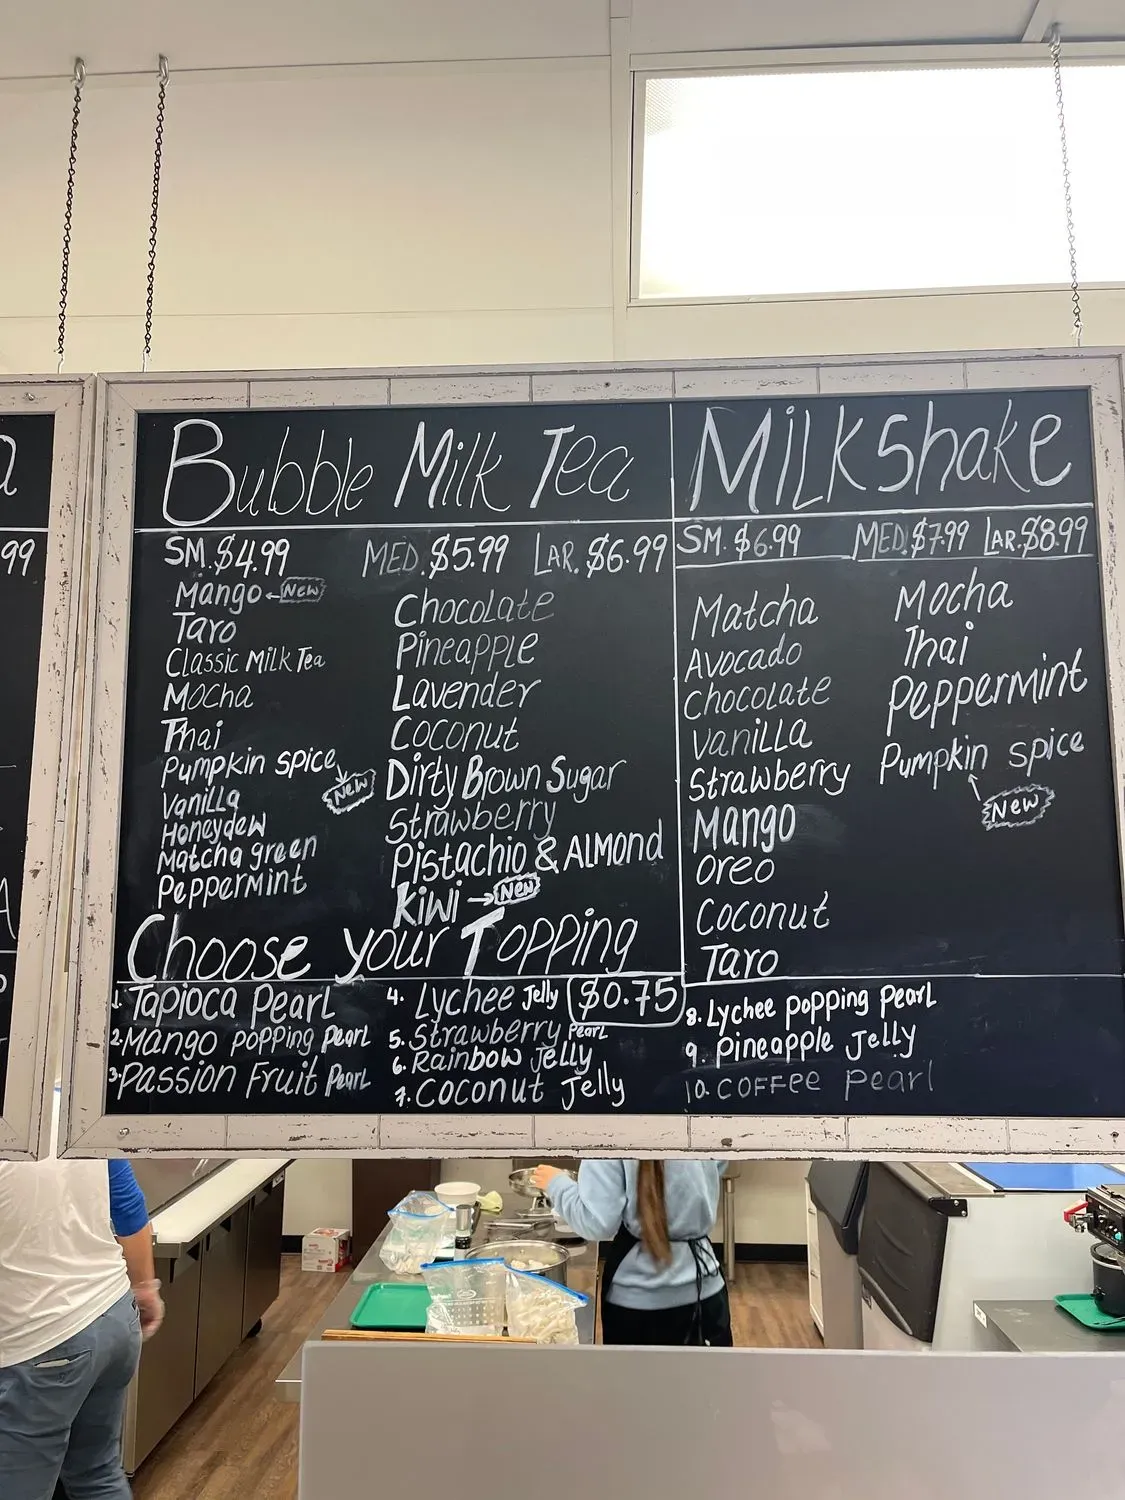 a
99
Bubble Milk Tea
SM. $4.99 MED. $5.99 LAR. $6.99
Mango New
Taro
Classic Milk Tea
Mocha
Thai
Pumpkin Spice New
Vanilla
Honeydew
Matcha green
Peppermint
Chocolate
Pineapple
Lavender
Coconut
Dirty Brown Sugar
Strawberry
Pistachio & Almond
Kiwi New
Milkshake
SM. $6.99 MED. $7.99 LAR. $8.99
Matcha
Avocado
Chocolate
Vanilla
Strawberry
Mango
Oreo
Coconut
Taro
Mocha
Thai
Peppermint
Pumpkin Spice
New
Choose your Topping
$0.75
1. Tapioca Pearl
2. Mango popping Pearl
3. Passion Fruit Pearl
4. Lychee Jelly
5. Strawberry Pearl
6. Rainbow Jelly
7. Coconut Jelly
8. Lychee popping pearl
9. Pineapple Jelly
10. Coffee Pearl